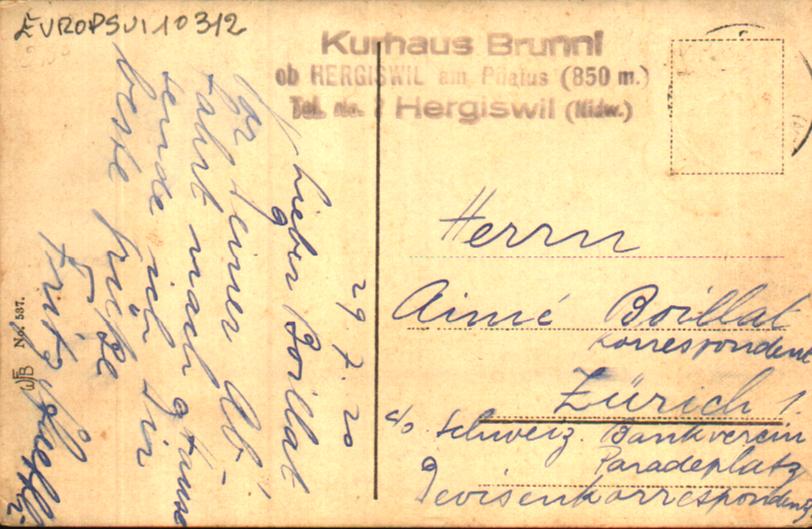 EVROPSVI10312
Kurhaus Brunni
ob HERGISWIL am Pilatus (850 m.)
Tel. No. Hergiswil (Nidw.)
29.7.20
Lieber Boillat
Vor deiner Ab-
fahrt nach
sende ich Dir
beste Grüße
Fritz
No. 537.
Herrn
Aimé Boillat
Korrespondent
Zürich 1
c/o Schweiz. Bankverein
Paradeplatz
Devisenkorrespondent